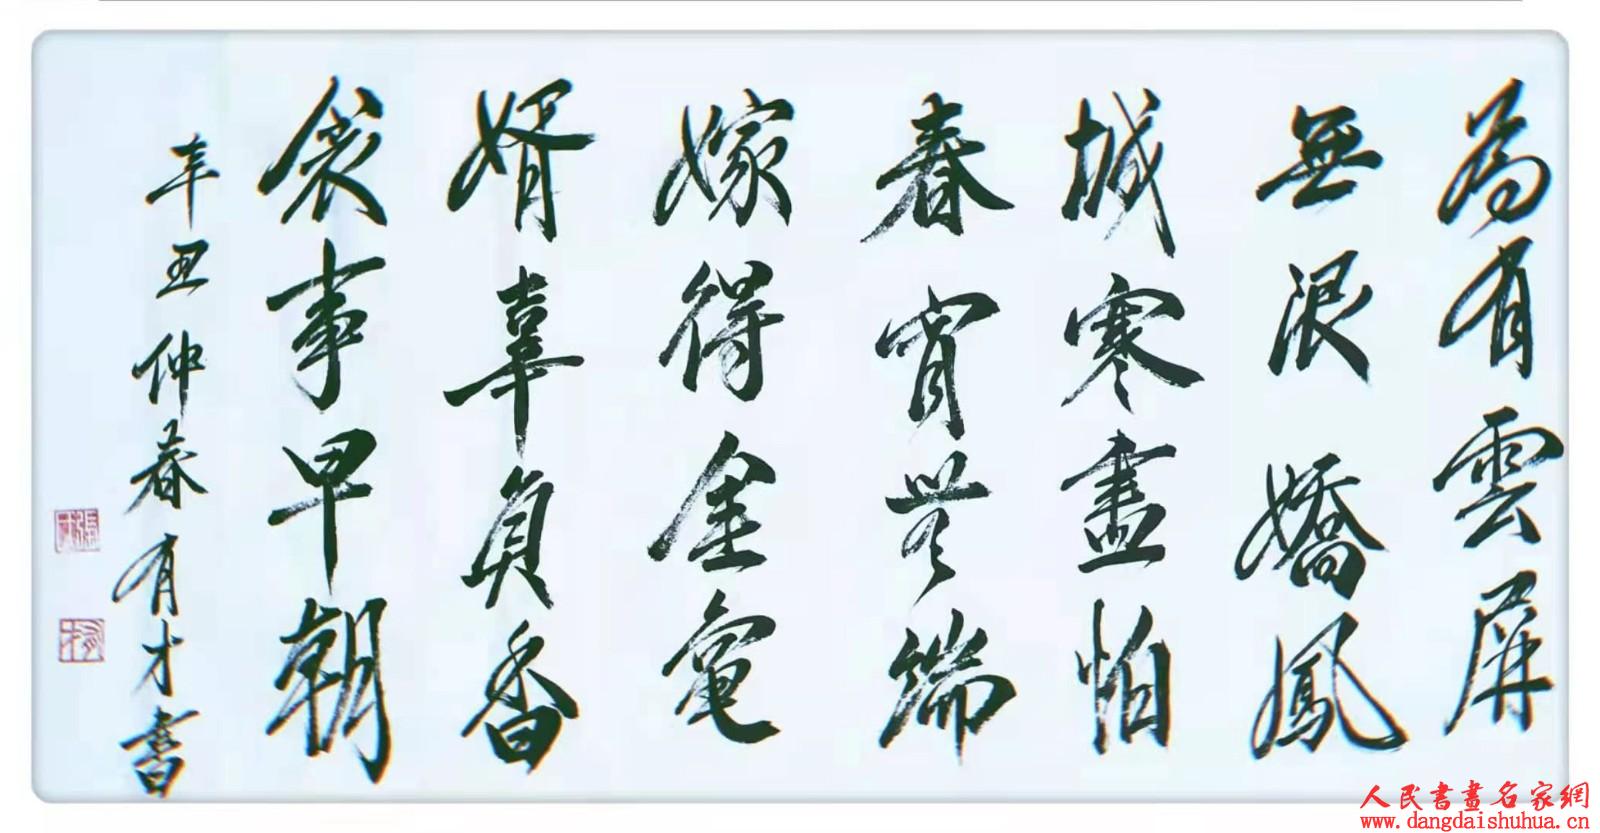 為有雲屏
無限嬌鳳
城寒盡怕
春宵無端
嫁得金龜
婿辜負香
衾事早朝
辛丑仲春有才書
人民書畫名家網
www.dangdaishuhua.cn